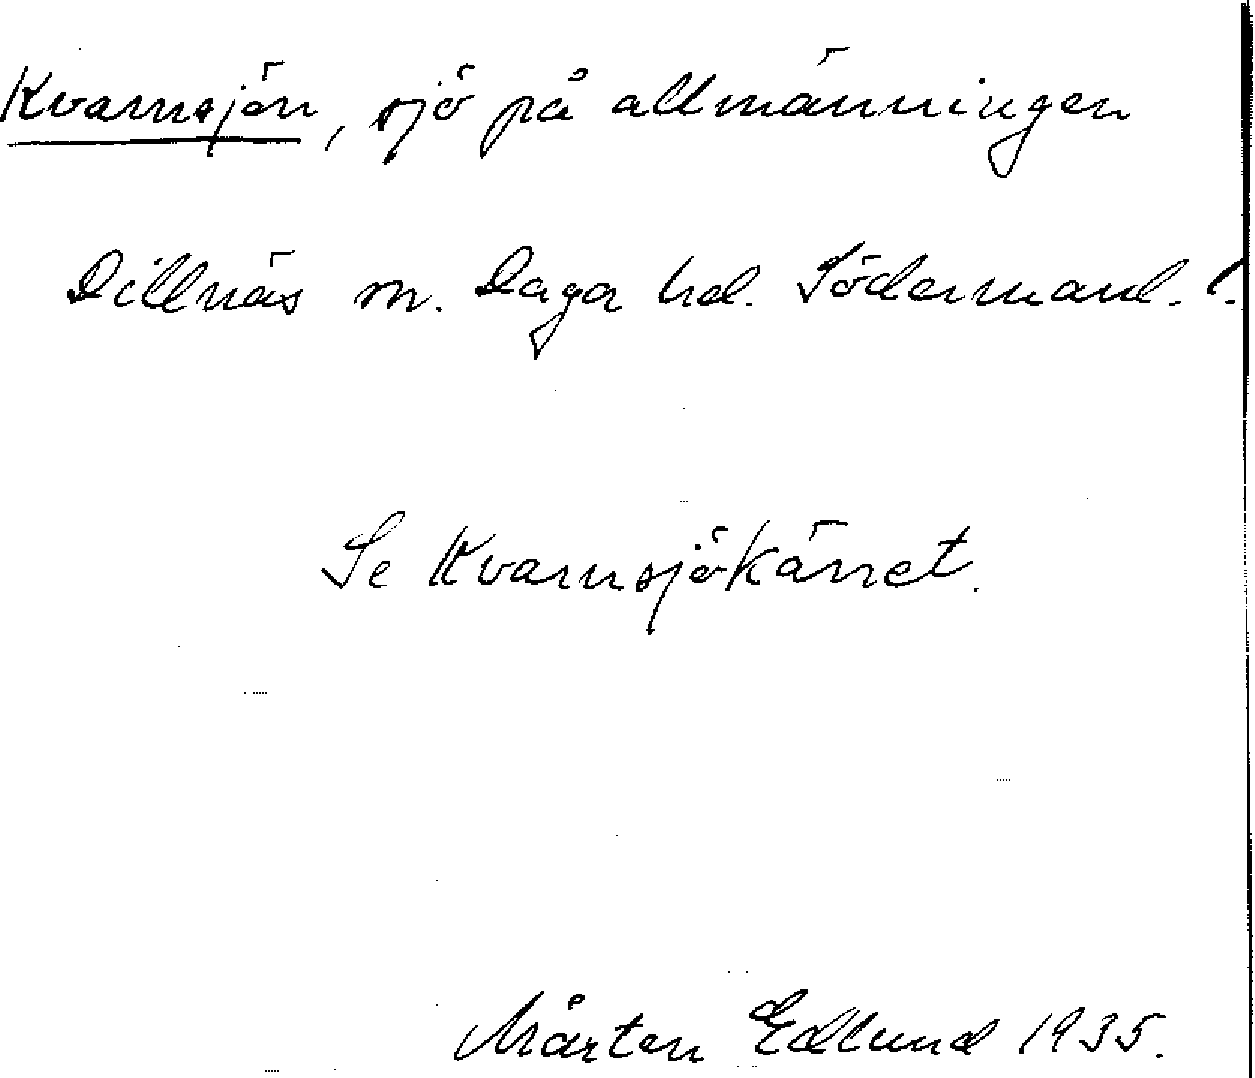 Kvarnsjön, sjö på allmänningen
Dillnäs sn. Daga hd. Södermanl. l.
Se Kvarnsjökärret.
Mårten Edlund 1935.